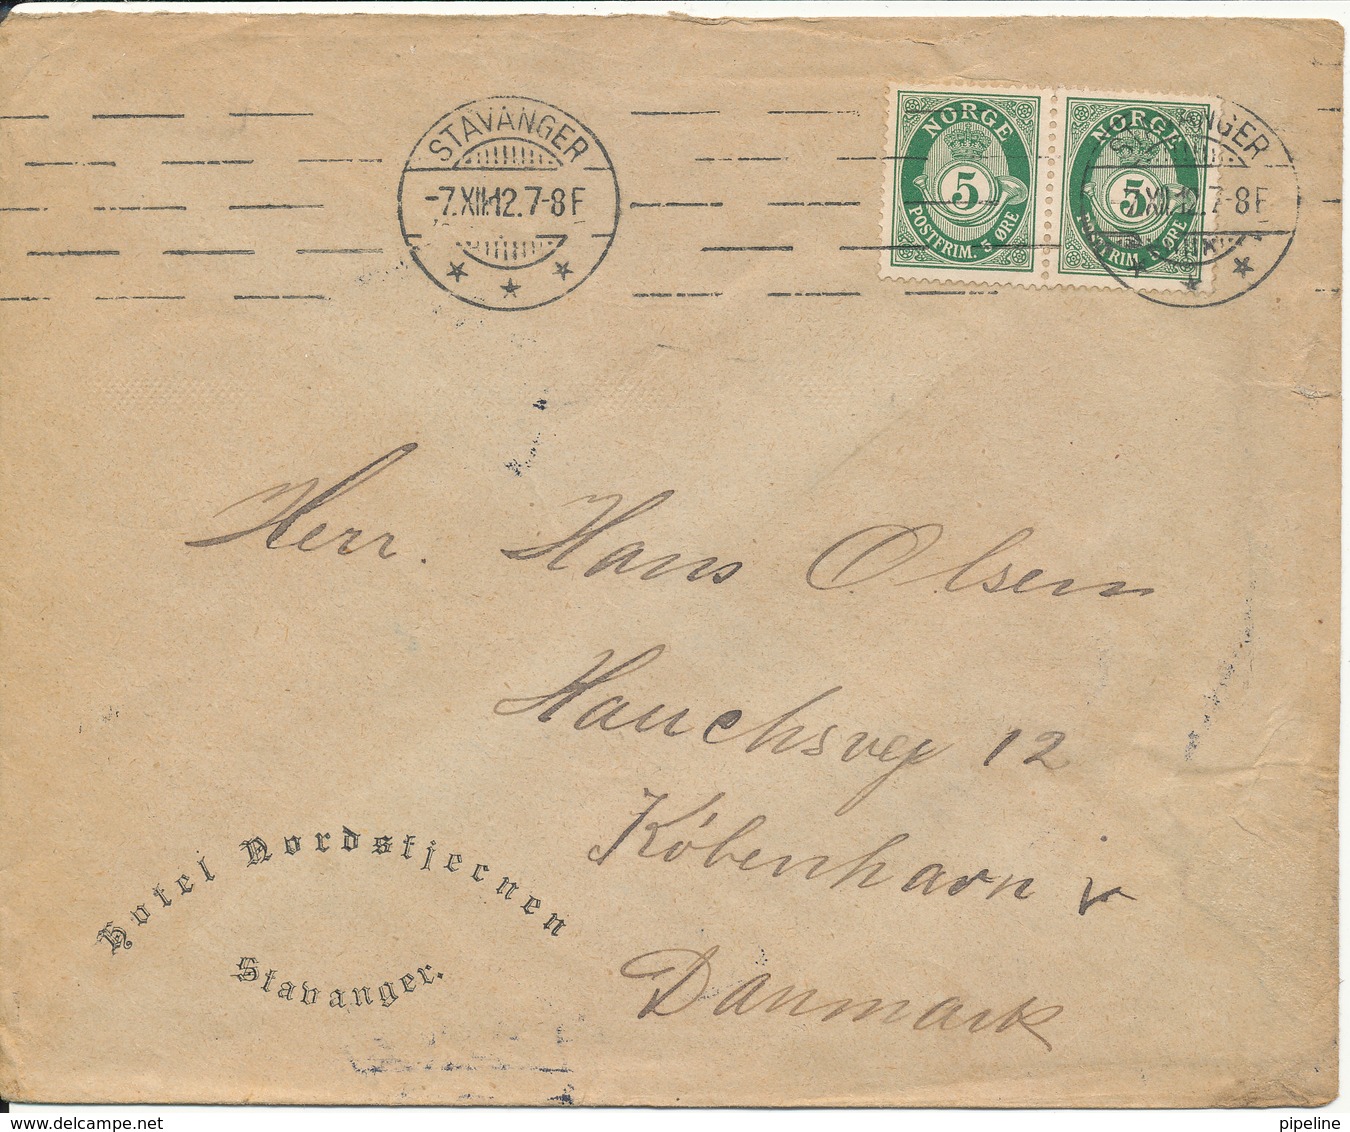 STAVANGER
-7.XII.12.7-8F
NORGE
5
POSTFRIM. 5 ØRE
NORGE
5
POSTFRIM. 5 ØRE
STAVANGER
-7.XII.12.7-8F
Herr. Hans Olsen
Hauchsvej 12
København V
Danmark
Hotel Nordstjernen
Stavanger.
delcampe.net
pipeline